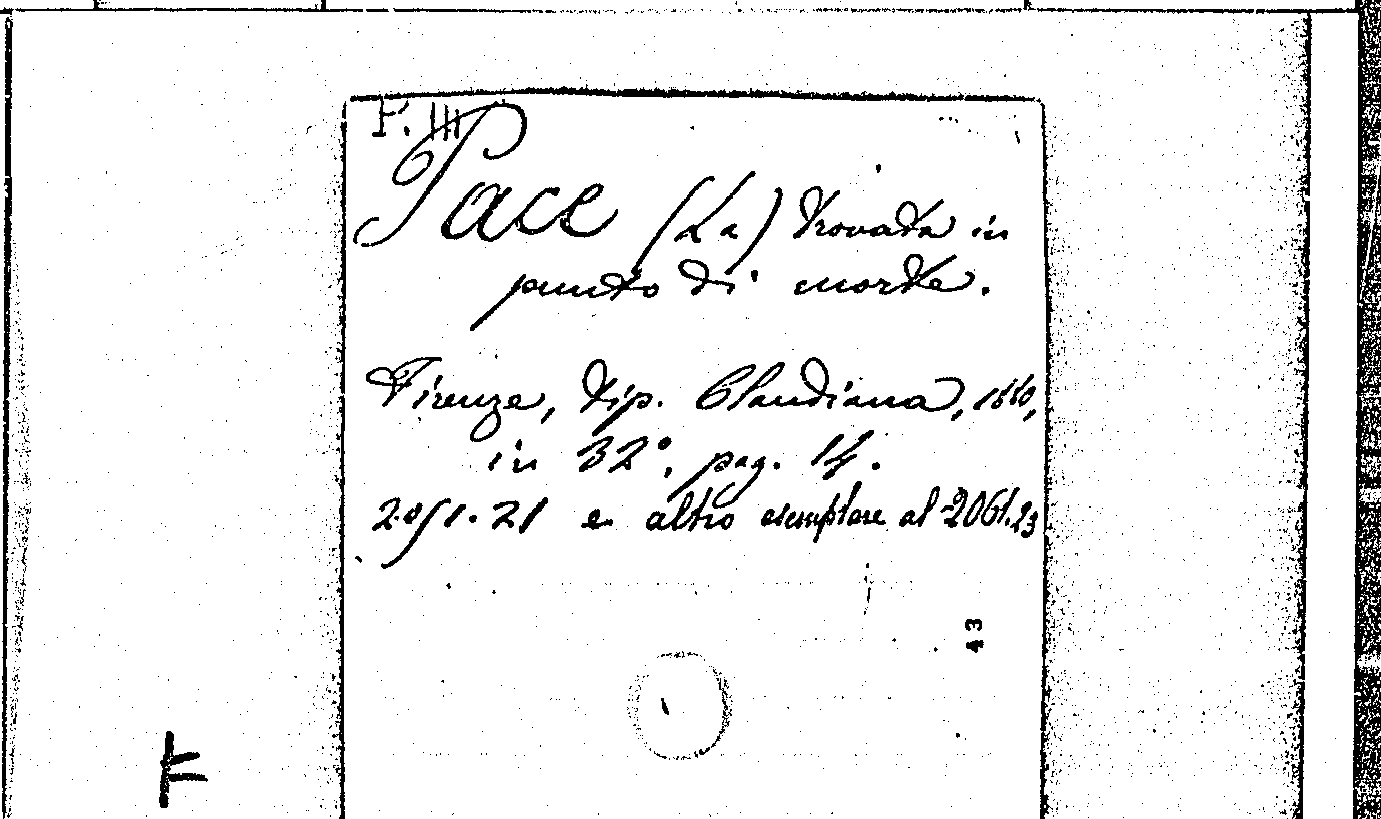 F. III
Pace (La) trovata in
punto di morte.
Firenze, tip. Claudiana, 1880,
in 32°, pag. 14.
2051.21 e altro esemplare al 2061.23
43
F